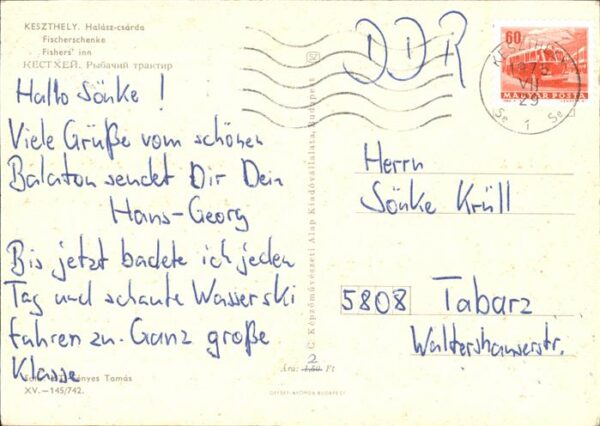 KESZTHELY. Halász-csárda
Fischerschenke
Fishers' inn
КЕСТХЕЙ. Рыбачий трактир
Hallo Sönke!
Viele Grüße vom schönen
Balaton sendet Dir Dein
Hans-Georg
Bis jetzt badete ich jeden
Tag und schaute Wasserski
fahren zu. Ganz große
Klasse
Tamás
XV.—145/742.
C. Képzőművészeti Alap Kiadóvállalata, Budapest
2
Ára: 1,50 Ft
OFFSET-NYOMDA BUDAPEST
DDR
60
MAGYAR POSTA
KESZTHELY
1973
VII
29
Se 1 Se
Herrn
Sönke Krüll
5808 Tabarz
Waltershauserstr.